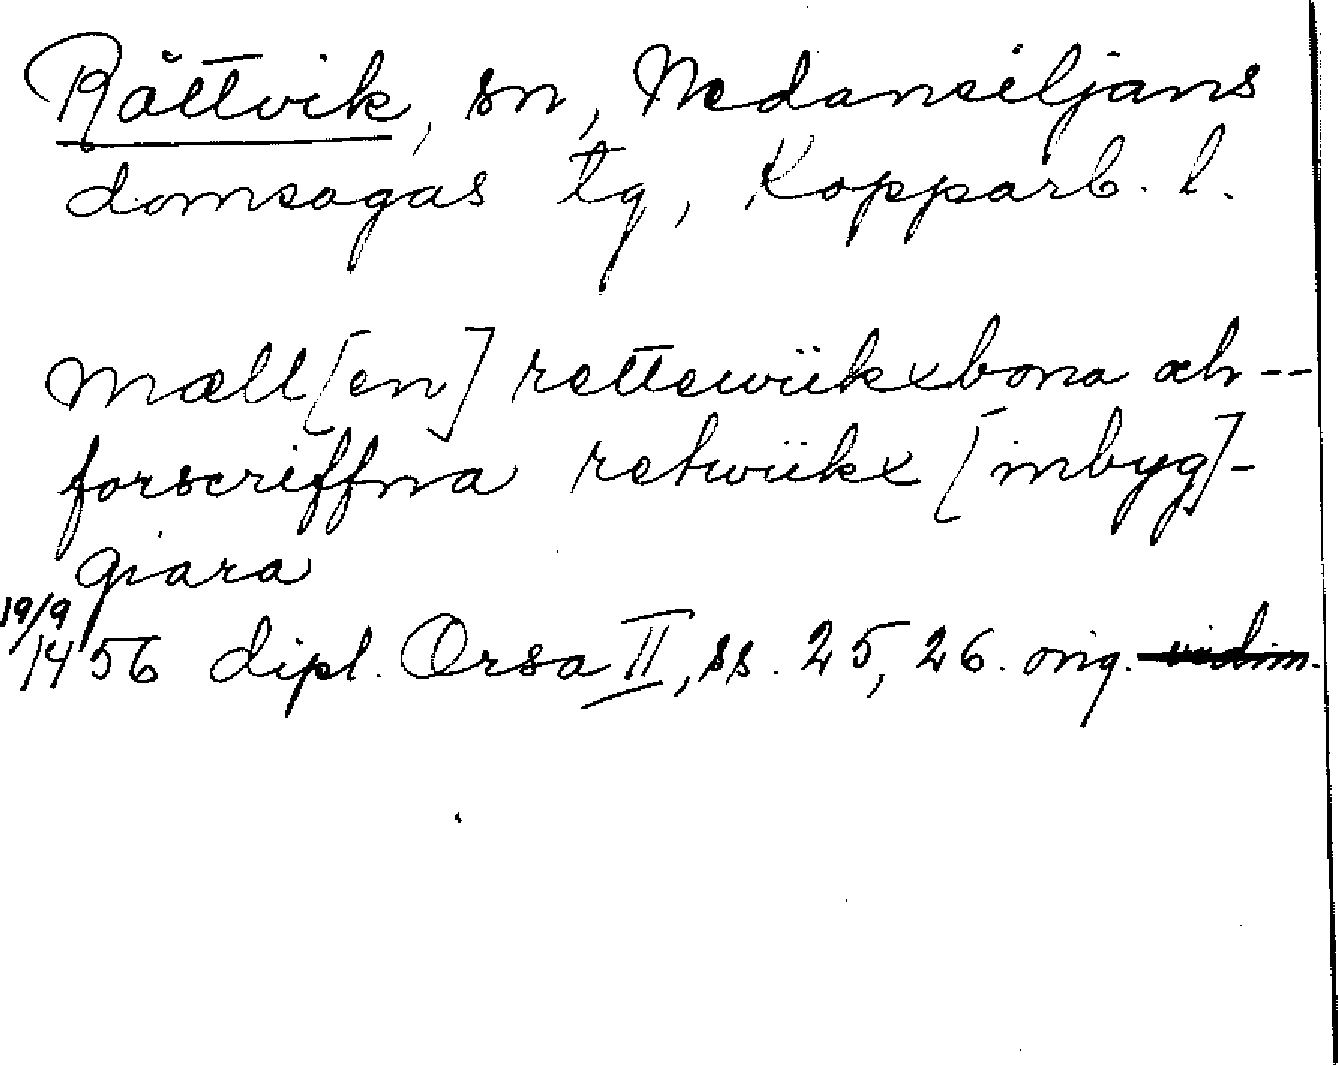 Rättvik, sn, Nedansiljans
domsagas tg, Kopparb. l.
mæll[en] rettewiikxbona och --
forscriffna retwiikx [inbyg]-
giara
19/9 1456 dipl. Orsa II, ss. 25, 26. orig. vidim.